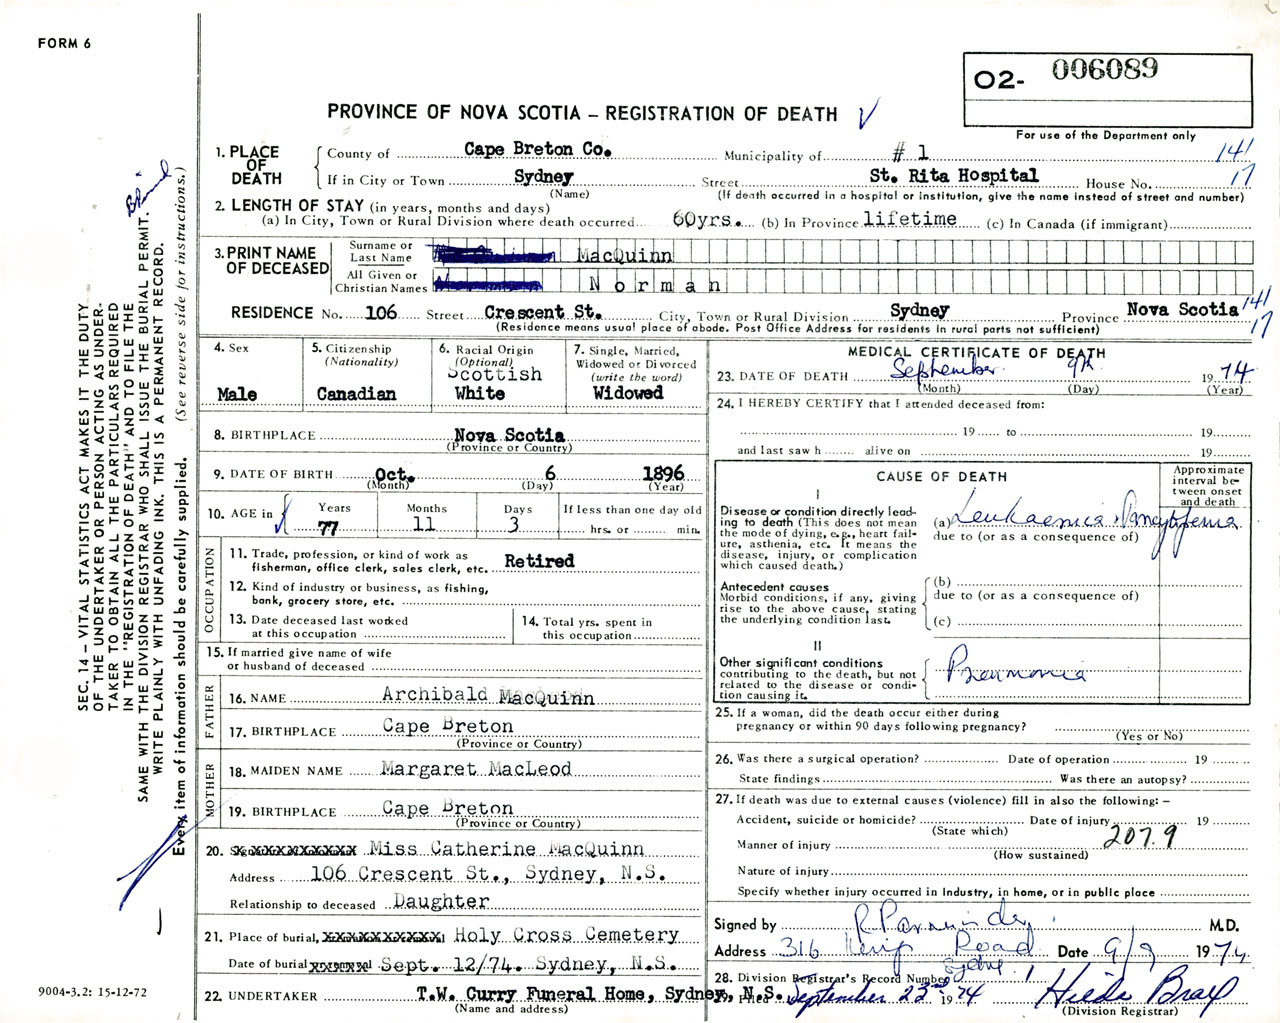 FORM 6
O2- 006089
For use of the Department only
PROVINCE OF NOVA SCOTIA – REGISTRATION OF DEATH
1. PLACE OF DEATH
County of Cape Breton Co. Municipality of # 1 141
If in City or Town Sydney Street St. Rita Hospital House No. 17
(Name) (If death occurred in a hospital or institution, give the name instead of street and number)
2. LENGTH OF STAY (in years, months and days)
(a) In City, Town or Rural Division where death occurred 60yrs. (b) In Province lifetime (c) In Canada (if immigrant)
3. PRINT NAME OF DECEASED
Surname or Last Name MacQuinn
All Given or Christian Names Norman
RESIDENCE No. 106 Street Crescent St. City, Town or Rural Division Sydney Province Nova Scotia 141 17
(Residence means usual place of abode. Post Office Address for residents in rural parts not sufficient)
4. Sex
Male
5. Citizenship (Nationality)
Canadian
6. Racial Origin (Optional)
Scottish
White
7. Single, Married, Widowed or Divorced (write the word)
Widowed
8. BIRTHPLACE Nova Scotia
(Province or Country)
9. DATE OF BIRTH Oct. 6 1896
(Month) (Day) (Year)
10. AGE in Years Months Days If less than one day old
77 11 3 hrs. or min.
OCCUPATION
11. Trade, profession, or kind of work as fisherman, office clerk, sales clerk, etc. Retired
12. Kind of industry or business, as fishing, bank, grocery store, etc.
13. Date deceased last worked at this occupation
14. Total yrs. spent in this occupation
15. If married give name of wife or husband of deceased
FATHER
16. NAME Archibald MacQuinn
17. BIRTHPLACE Cape Breton
(Province or Country)
MOTHER
18. MAIDEN NAME Margaret MacLeod
19. BIRTHPLACE Cape Breton
(Province or Country)
20. Miss Catherine MacQuinn
Address 106 Crescent St., Sydney, N.S.
Relationship to deceased Daughter
21. Place of burial, Holy Cross Cemetery
Date of burial Sept. 12/74. Sydney, N.S.
22. UNDERTAKER T.W. Curry Funeral Home, Sydney, N.S.
(Name and address)
MEDICAL CERTIFICATE OF DEATH
23. DATE OF DEATH September 9th 1974
(Month) (Day) (Year)
24. I HEREBY CERTIFY that I attended deceased from:
19 to 19
and last saw h alive on 19
CAUSE OF DEATH
Approximate interval between onset and death
I
Disease or condition directly leading to death (This does not mean the mode of dying, e.g., heart failure, asthenia, etc. It means the disease, injury, or complication which caused death.)
(a) Leukaemica Pancytopenia
due to (or as a consequence of)
Antecedent causes
Morbid conditions, if any, giving rise to the above cause, stating the underlying condition last.
(b)
due to (or as a consequence of)
(c)
II
Other significant conditions contributing to the death, but not related to the disease or condition causing it.
Pneumonia
25. If a woman, did the death occur either during pregnancy or within 90 days following pregnancy?
(Yes or No)
26. Was there a surgical operation? Date of operation 19
State findings Was there an autopsy?
27. If death was due to external causes (violence) fill in also the following: –
Accident, suicide or homicide? Date of injury 19
(State which) 207.9
Manner of injury
(How sustained)
Nature of injury
Specify whether injury occurred in Industry, in home, or in public place
Signed by M.D.
Address 316 Road Sydney Date 9/9 1974
28. Division Registrar's Record Number 1
September 23rd 1974
(Division Registrar)
SEC. 14 – VITAL STATISTICS ACT MAKES IT THE DUTY
OF THE UNDERTAKER OR PERSON ACTING AS UNDER-
TAKER TO OBTAIN ALL THE PARTICULARS REQUIRED
IN THE "REGISTRATION OF DEATH" AND TO FILE THE
SAME WITH THE DIVISION REGISTRAR WHO SHALL ISSUE THE BURIAL PERMIT.
WRITE PLAINLY WITH UNFADING INK. THIS IS A PERMANENT RECORD.
Every item of information should be carefully supplied. (See reverse side for instructions.)
9004-3.2: 15-12-72